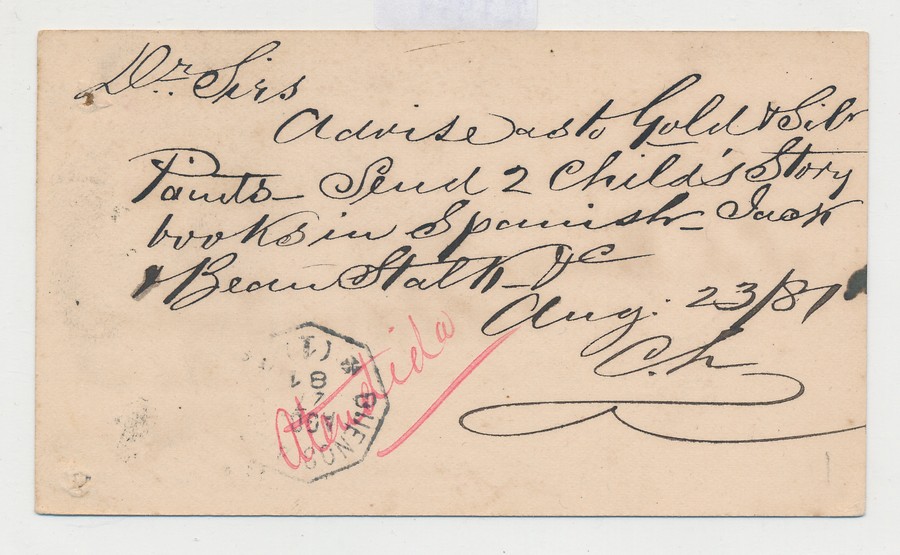 Dr. Sirs
Advise as to Gold & Silvr
Paints - Send 2 Child's Story
books in Spanish - Jack
& Bean Stalk - &c
Aug. 23/81
C.h
Atendida
BUENOS
AGO
81
(1)